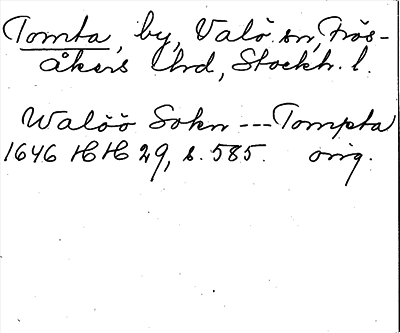 Tomta, by, Valö sn, Frös-
åkers hrd, Stockh. l.
Walöö Sokn --- Tompta
1646 HH 29, s. 585. orig.